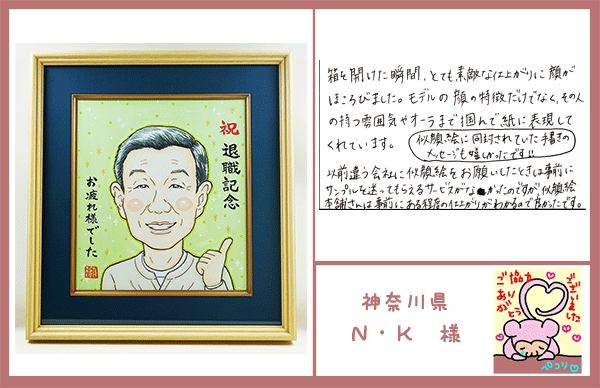 祝
退職記念
お疲れ様でした
箱を開けた瞬間、とても素敵な仕上がりに顔が
ほころびました。モデルの顔の特徴だけでなく、その人
の持つ雰囲気やオーラまで掴んで紙に表現して
くれています。
似顔絵に同封されていた手書きの
メッセージも嬉しかったです!!
以前違う会社に似顔絵をお願いしたときは事前に
サンプルを送ってもらえるサービスがなかったのですが、似顔絵
本舗さんは事前にある程度の仕上がりがわかるので良かったです。
神奈川県
N・K 様
ご協力
ありがとう
ございました
ペコリ